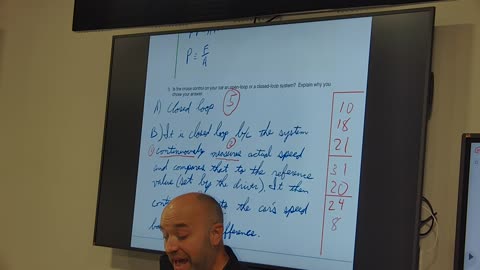 P = F/A
3. Is the cruise control on your car an open-loop or a closed-loop system? Explain why you chose your answer.
A) Closed loop 5
B) It is closed loop b/c the system
① continuously ② measures actual speed
and compares that to the reference
value (set by the driver). It then
the car's speed
difference.
10
18
21
31
20
24
8